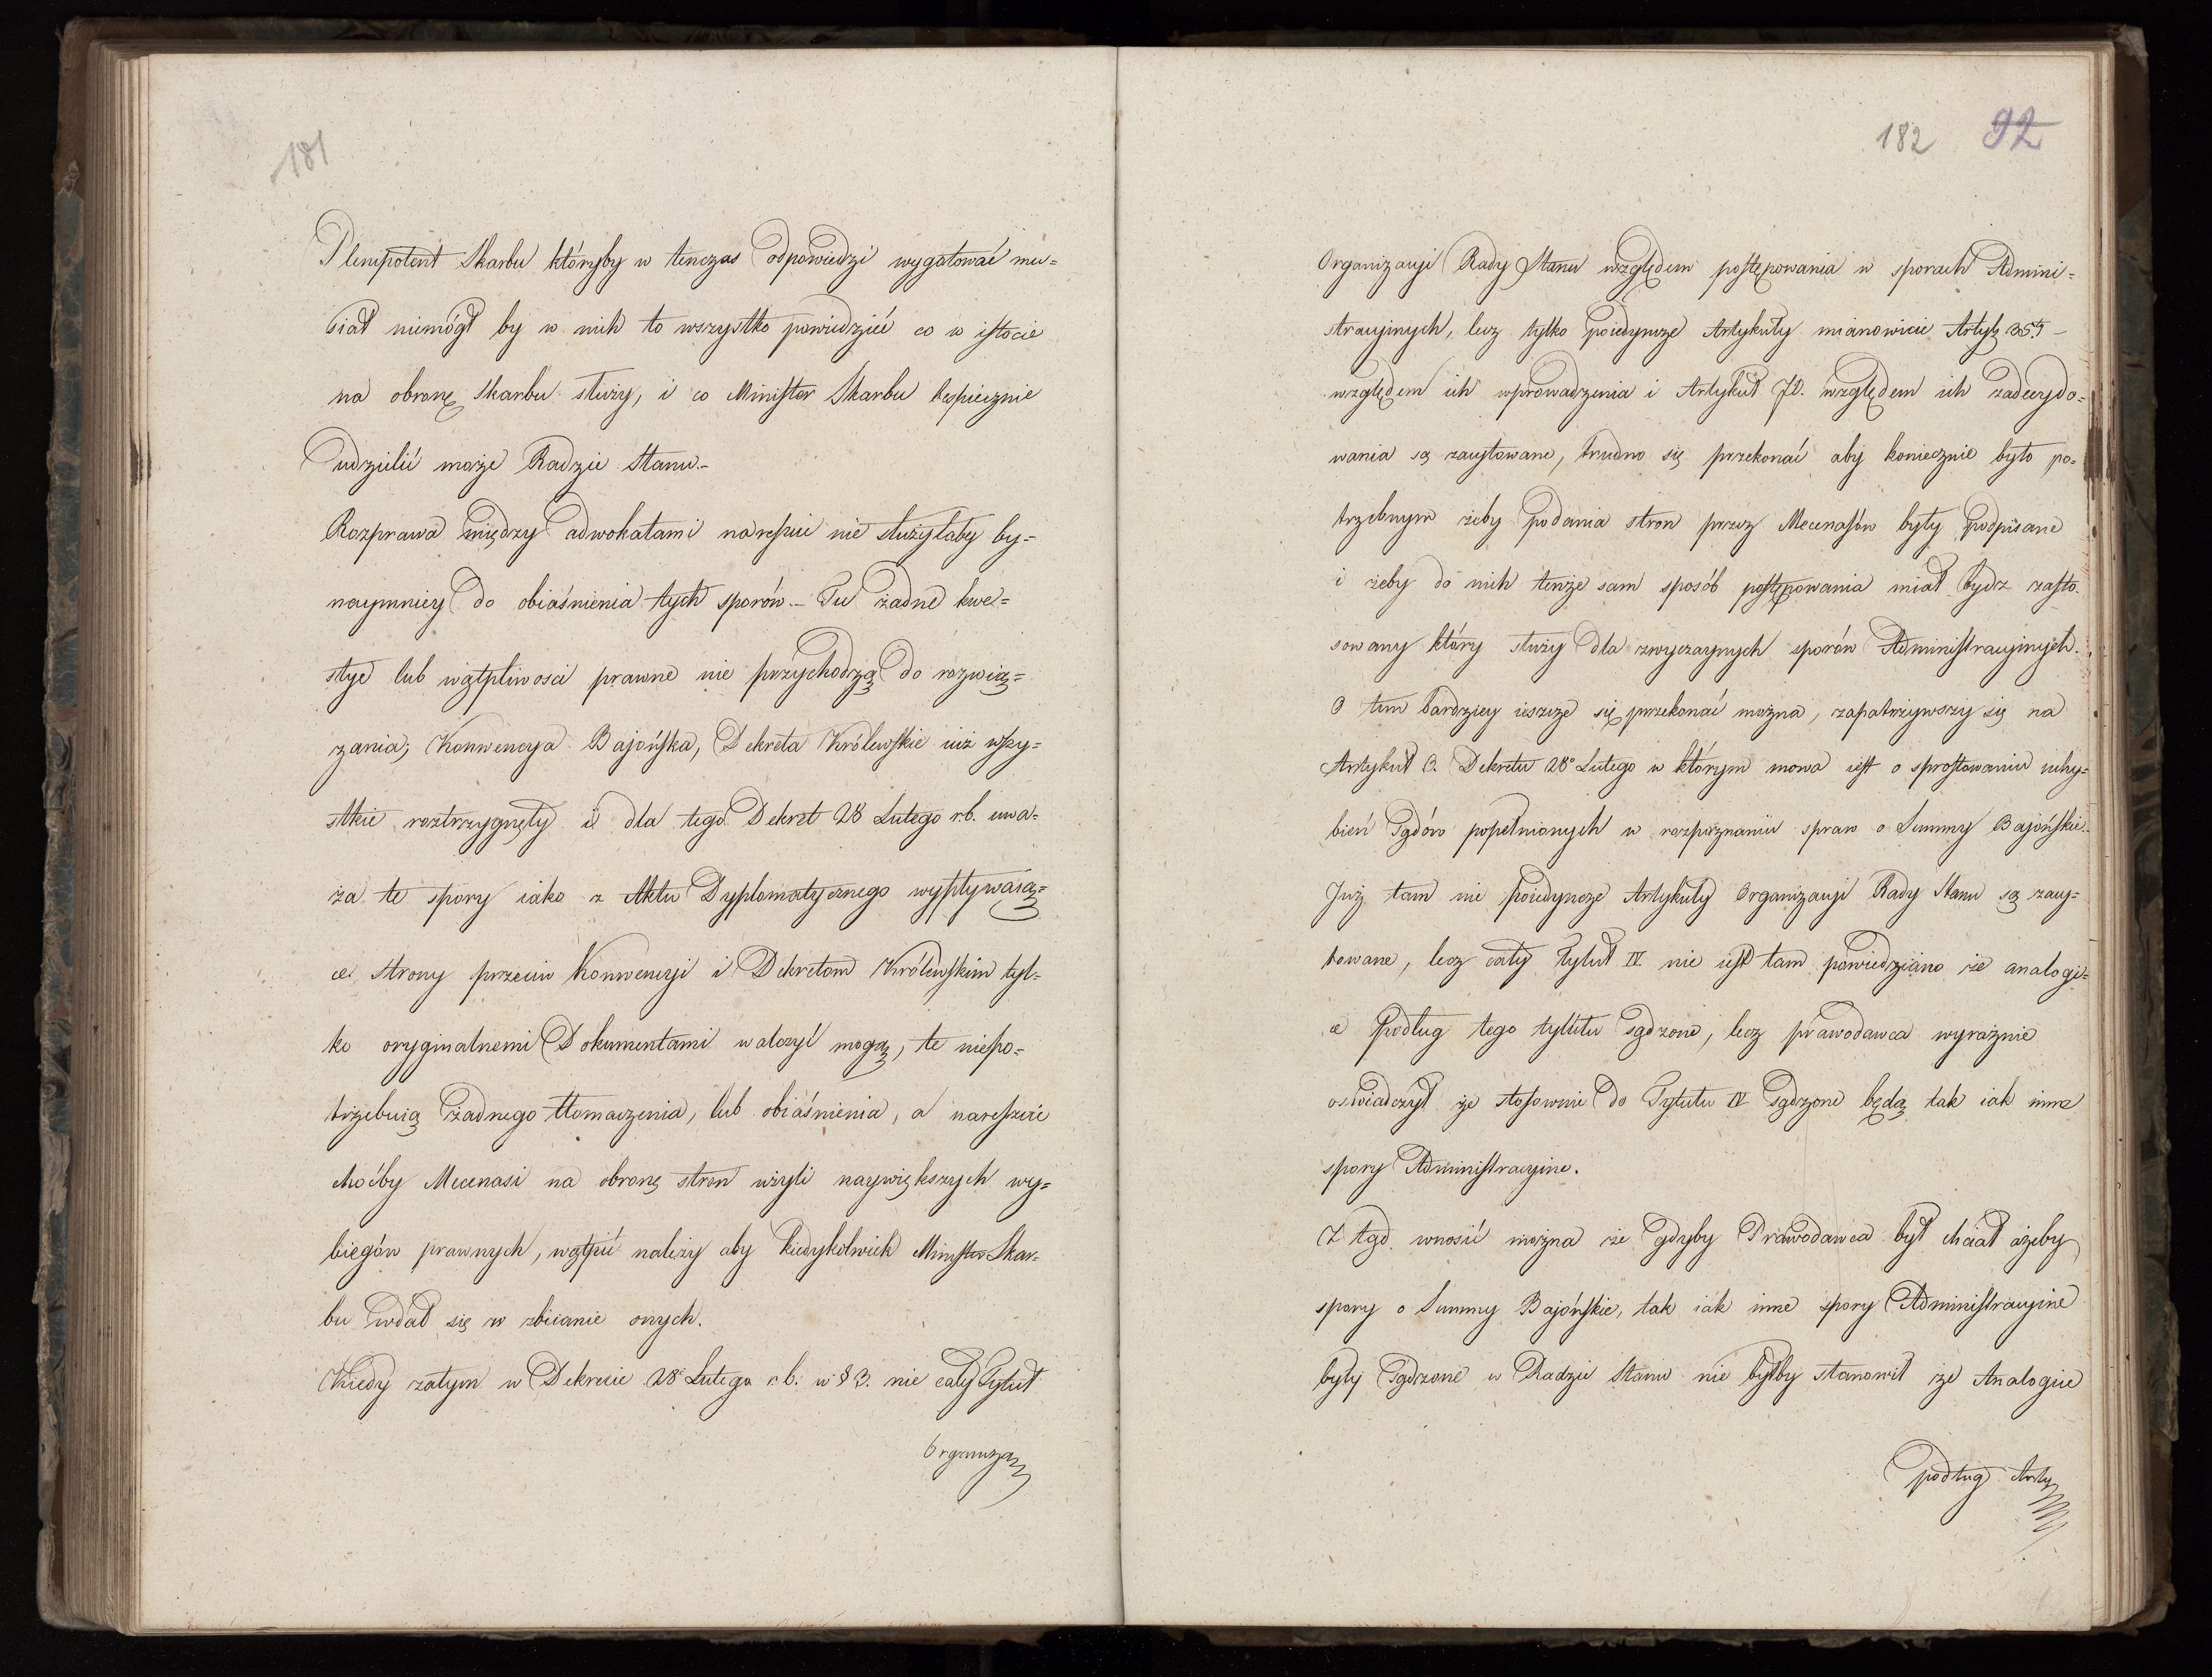 181
Plenipotent Skarbu któryby w tenczas odpowiedzi wygotować mu=
siał niemógł by w nich to wszystko powiedzieć co w istocie
na obronę Skarbu służy, i co Minister Skarbu bespiecznie
udzielić może Radzie Stanu.-
Rozprawa między adwokatami naresście nie służyłaby by=
naymniey do obiaśnienia tych sporów.- Tu żadne kwe=
stye lub wątpliwosci prawne nie przychodzą do rozwią=
zania, Konwencya Bajońska, Dekreta Królewskie iuż wszy=
stkie roztrzygnęły i dla tego Dekret 28 Lutego r.b. uwa=
ża te spory iako z Aktu Dyplomatycznego wypływaią=
ce. Strony przeciw Konwencyi i Dekretom Królewskim tyl=
ko oryginalnemi Dokumentami walczyć mogą, te niepo=
trzebuią żadnego tłomaczenia, lub obiaśnienia, a nareszcie
choćby Mecenasi na obronę stron użyli naywiększych wy=
biegów prawnych, wątpić należy aby kiedykolwiek Minister Skar=
bu wdał się w zbiianie onych.
Kiedy zatym w Dekrecie 28° Lutego r.b. w § 3. nie cały Tytuł
Organiza
182 92
Organizacyi Rady Stanu względem postępowania w sporach Admini=
stracyinych, lecz tylko poiedyncze Artykuły mianowicie Artyk 35ty -
względem ich wprowadzenia i Artykuł 70. względem ich zadecydo=
wania są zacytowane, trudno się przekonać aby koniecznie było po=
trzebnym żeby podania stron przez Mecenasów były podpisane
i żeby do nich tenże sam sposób postępowania miał bydz zasto.
sowany który służy dla zwyczaynych sporów Administracyinych.
O tem bardziey ieszcze się przekonać można, zapatrzywszy się na
Artykuł 6. Dekretu 28° Lutego w którym mowa iest o sprostowaniu uchy=
bień Sądów popełnionych w rozpoznaniu spraw o Summy Bajońskie.
Już tam nie poiedyncze Artykuły Organizacyi Rady Stanu są zacy=
towane, lecz cały Tytuł IV. nie iest tam powiedziano że analogi=
e podług tego tytułu sądzone, lecz prawodawca wyraźnie
oswiadczył że stosownie do Tytułu IV sądzone będą tak iak inne
spory Administracyine.
Z tąd wnosić można że gdyby Prawodawca był chciał ażeby
spory o Summy Bajońskie, tak iak inne spory Administracyine
były Sądzone w Radzie Stanu nie byłby stanowił że Analogiie
podług Arty